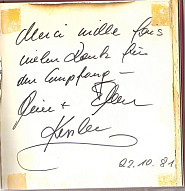 Merci mille fois
vielen Dank für
den Empfang –
Peier + Ellen
Kessler
22.10.81